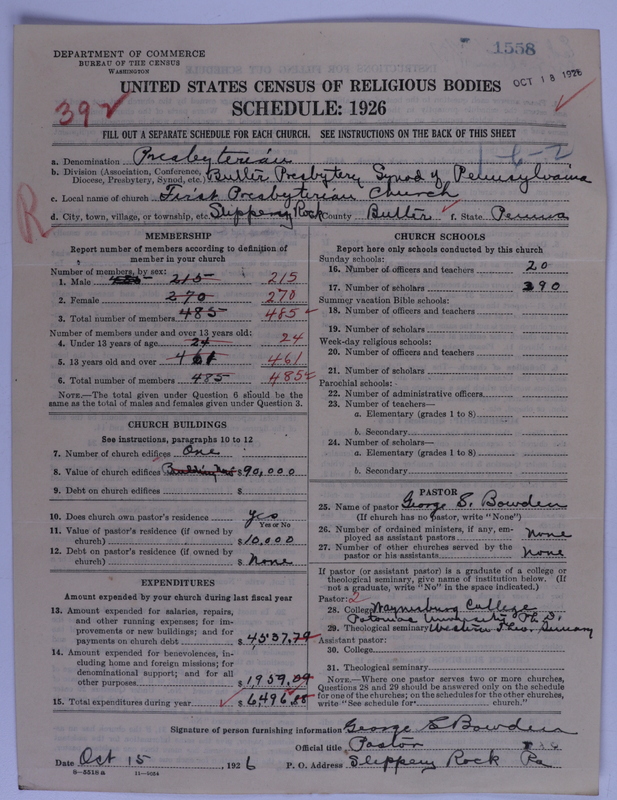 1558
OCT 18 1926
DEPARTMENT OF COMMERCE
BUREAU OF THE CENSUS
WASHINGTON
UNITED STATES CENSUS OF RELIGIOUS BODIES
SCHEDULE: 1926
392
FILL OUT A SEPARATE SCHEDULE FOR EACH CHURCH. SEE INSTRUCTIONS ON THE BACK OF THIS SHEET
1-6-2
R
a. Denomination Presbyterian
b. Division (Association, Conference, Diocese, Presbytery, Synod, etc.) Butler Presbytery Synod of Pennsylvania
c. Local name of church First Presbyterian Church
d. City, town, village, or township, etc. Slippery Rock County Butler f. State Penna
MEMBERSHIP
Report number of members according to definition of
member in your church
Number of members, by sex:
1. Male 215 215
2. Female 270 270
3. Total number of members 485 485
Number of members under and over 13 years old:
4. Under 13 years of age 24 24
5. 13 years old and over 461 461
6. Total number of members 485 485
NOTE.—The total given under Question 6 should be
same as the total of males and females given under Question 3.
CHURCH BUILDINGS
See instructions, paragraphs 10 to 12
7. Number of church edifices One
8. Value of church edifices $90,000
9. Debt on church edifices $
10. Does church own pastor's residence yes
Yes or No
11. Value of pastor's residence (if owned by
church) $10,000
12. Debt on pastor's residence (if owned by
church) $ None
EXPENDITURES
Amount expended by your church during last fiscal year
13. Amount expended for salaries, repairs,
and other running expenses; for im-
provements or new buildings; and for
payments on church debt $4537.79
14. Amount expended for benevolences, in-
cluding home and foreign missions; for
denominational support; and for all
other purposes $1959.09
15. Total expenditures during year $6496.88
CHURCH SCHOOLS
Report here only schools conducted by this church
Sunday schools:
16. Number of officers and teachers 20
17. Number of scholars 390
Summer vacation Bible schools:
18. Number of officers and teachers
19. Number of scholars
Week-day religious schools:
20. Number of officers and teachers
21. Number of scholars
Parochial schools:
22. Number of administrative officers
23. Number of teachers—
a. Elementary (grades 1 to 8)
b. Secondary
24. Number of scholars—
a. Elementary (grades 1 to 8)
b. Secondary
PASTOR
25. Name of pastor George S. Bowden
(If church has no pastor, write "None")
26. Number of ordained ministers, if any, em-
ployed as assistant pastors None
27. Number of other churches served by the
pastor or his assistants None
If pastor (or assistant pastor) is a graduate of a college or
theological seminary, give name of institution below. (If
not a graduate, write "No" in the space indicated.)
Pastor: 2
28. College Waynesburg College
Potomac University Ph.D.
29. Theological seminary Western Theo. Seminary
Assistant pastor:
30. College
31. Theological seminary
NOTE.—Where one pastor serves two or more churches,
Questions 28 and 29 should be answered only on the schedule
for one of the churches; on the schedules for the other churches
write "See schedule for church."
Signature of person furnishing information George S Bowden
Official title Pastor
Date Oct 15, 1926 P. O. Address Slippery Rock Pa
9—5518 a 11—9034